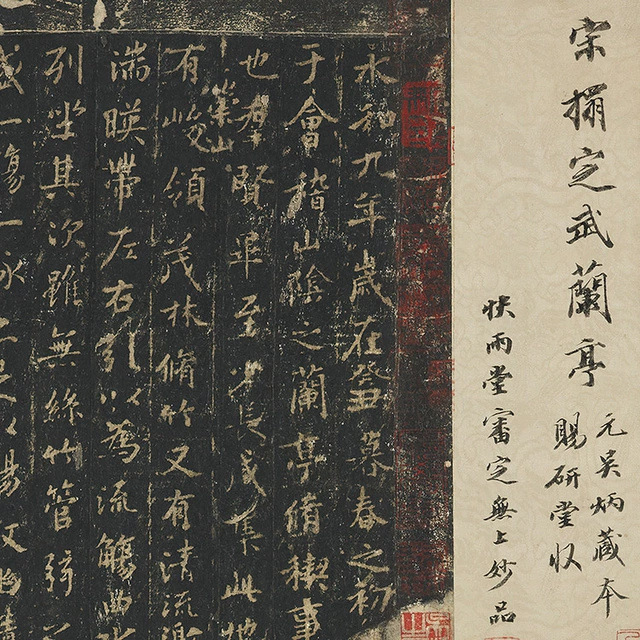 宋搨定武蘭亭
元吳炳藏本
賜研堂收
快雨堂審定無上妙品
永和九年歲在癸丑暮春之初
于會稽山陰之蘭亭脩稧事
也羣賢畢至少長咸集此地
有崇山峻領茂林脩竹又有清流激
湍暎帶左右引以為流觴曲水
列坐其次雖無絲竹管弦
盛一觴一詠